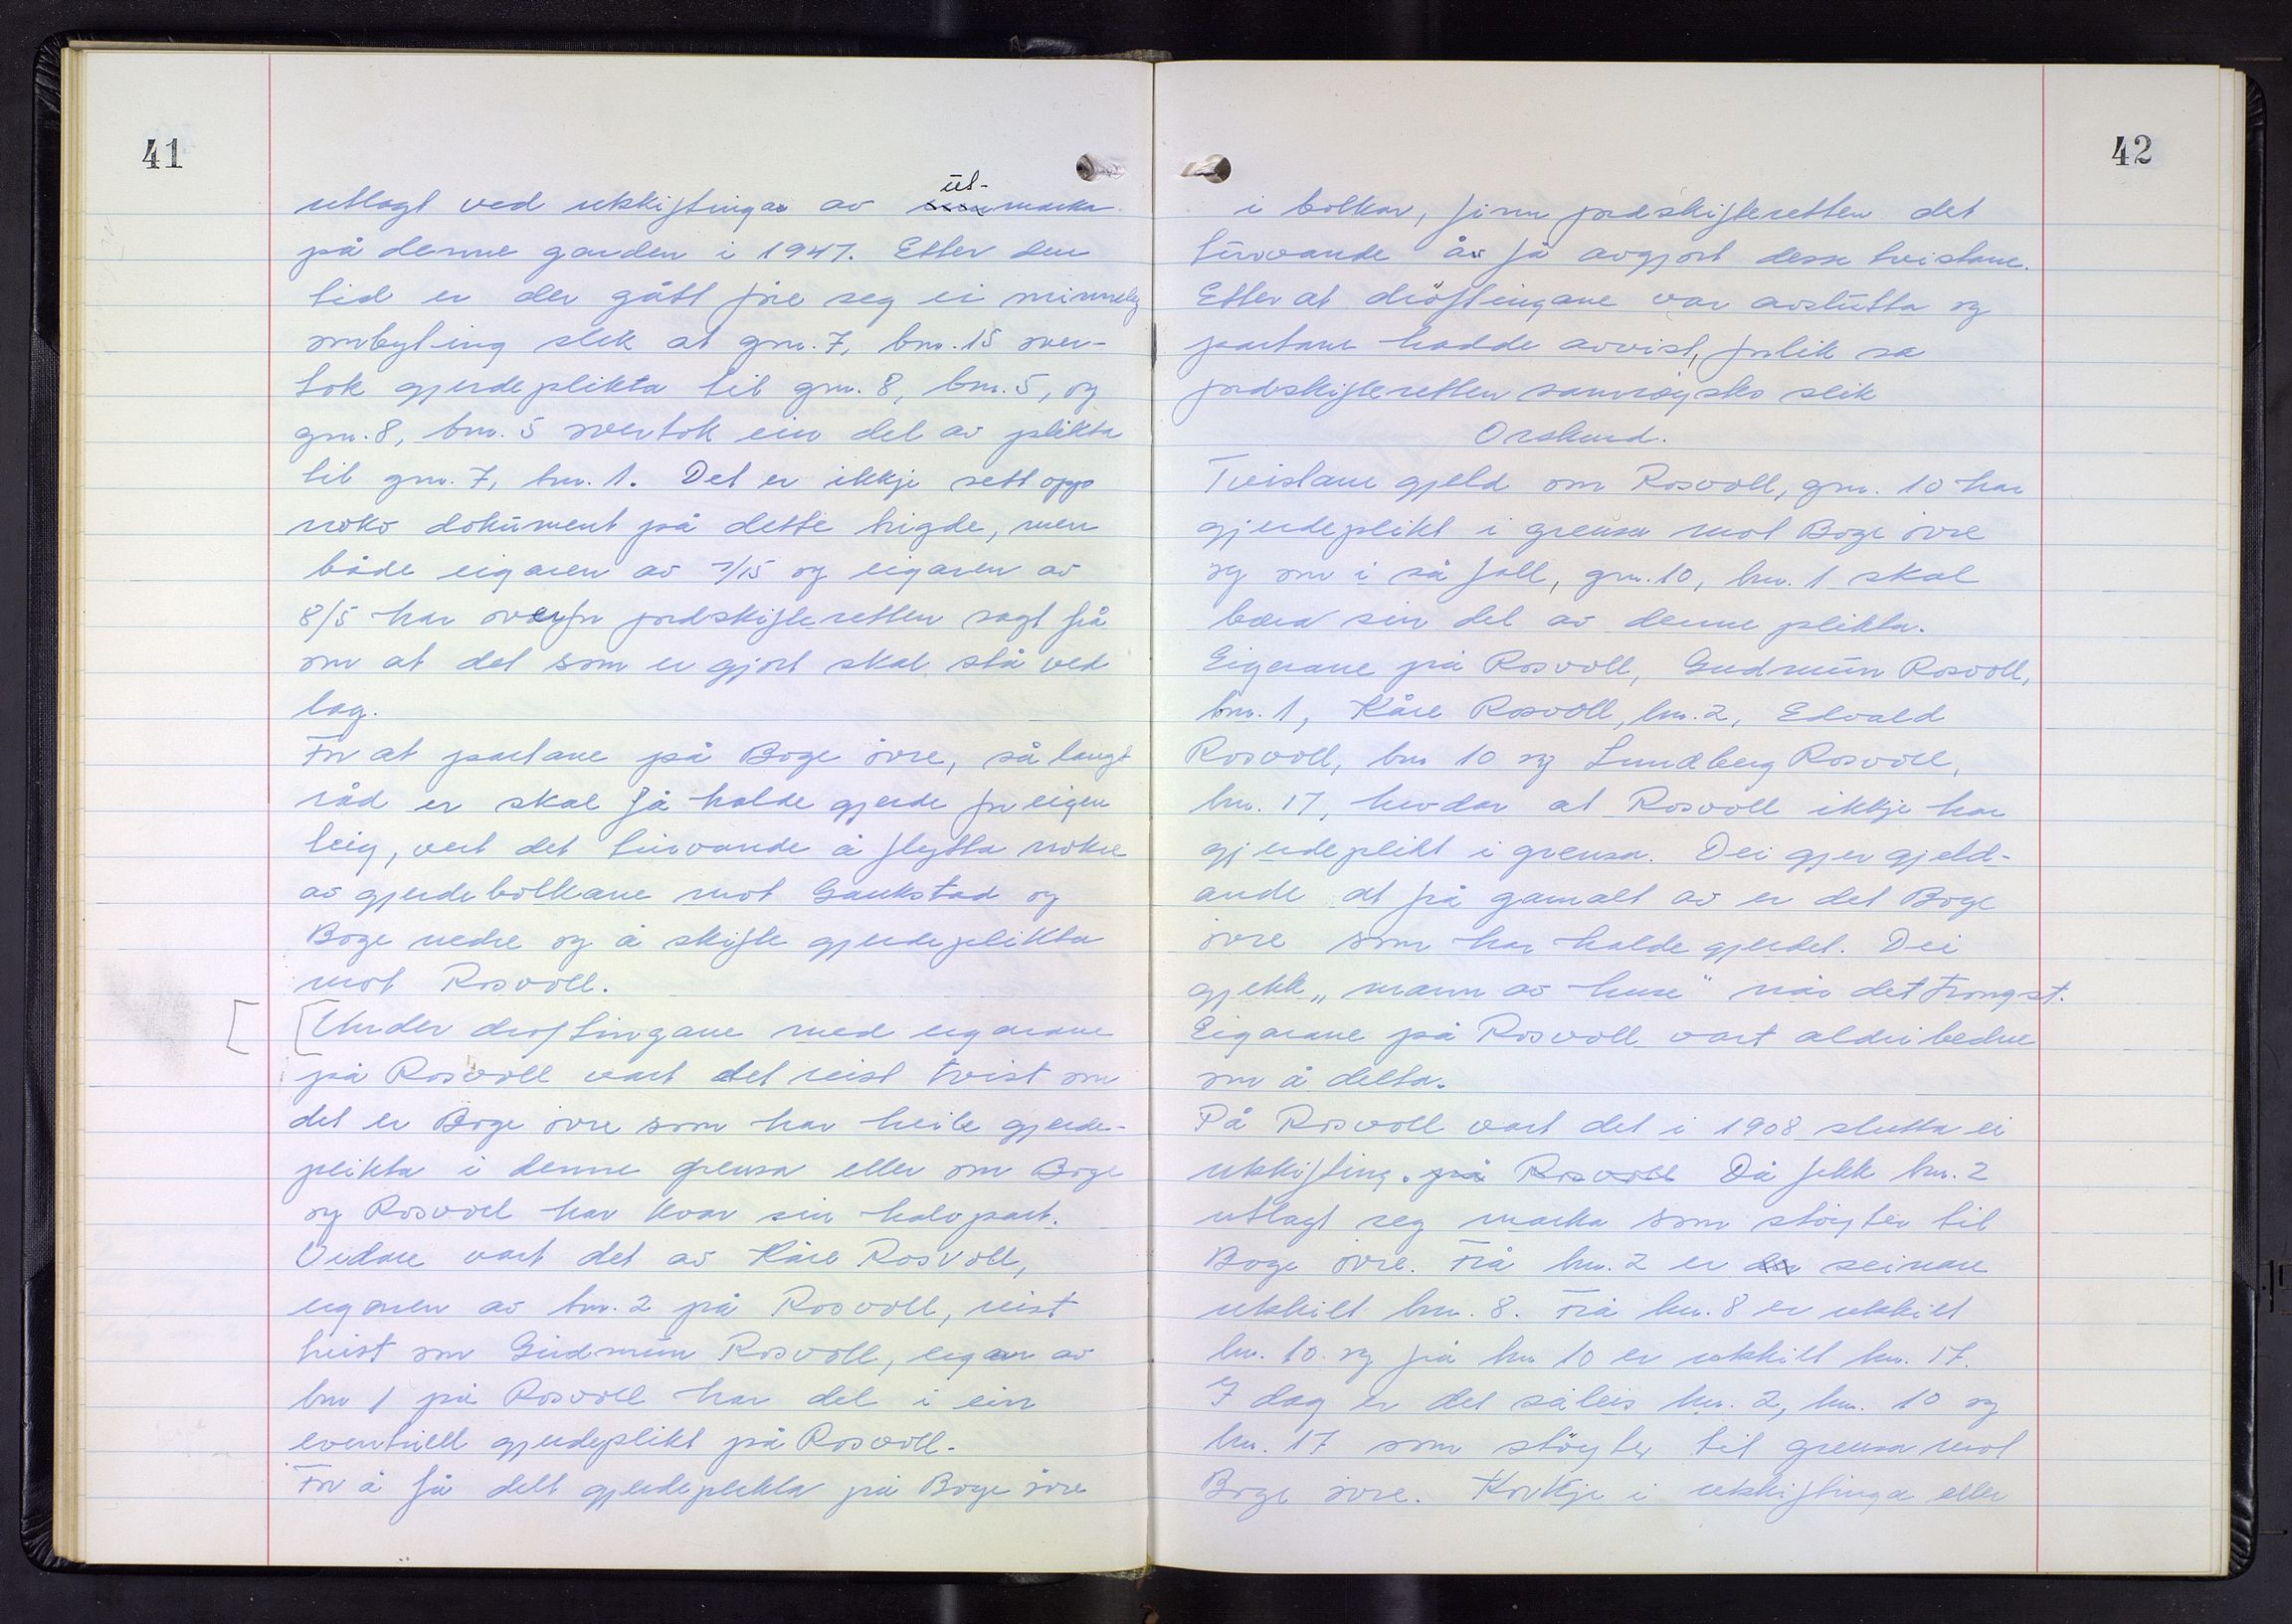 41
utlagt ved utskiftinga av ut-marka
på denne garden i 1947. Etter den
tid er der gått føre seg ei minneleg
ombyting slik at gnr. 7, bnr. 15 over-
tok gjerdeplikta til gnr. 8, bnr. 5, og
gnr. 8, bnr. 5 overtok ein del av plikta
til gnr. 7, bnr. 1. Det er ikkje sett opp
noko dokument på dette bigde, men
både eigaren av 7/15 og eigaren av
8/5 har overfor jordskifteretten sagt frå
om at det som er gjort skal stå ved
lag.
For at partane på Boge øvre, så langt
råd er skal få halde gjerde for eigen
teig, vert det turvande å flytta nokre
av gjerdebolkane mot Gaukstad og
Boge nedre og å skifte gjerdeplikta
mot Rosvoll.
Under drøftingane med eigarane
på Rosvoll vart det reist tvist om
det er Boge øvre som har heile gjerde-
plikta i denne grensa eller om Boge
og Rosvoll har kvar sin halvpart.
Vidare vart det av Kåre Rosvoll,
eigaren av bnr. 2 på Rosvoll, reist
tvist om Gudmun Rosvoll, eigar av
bnr 1 på Rosvoll har del i ein
eventuell gjerdeplikt på Rosvoll.
For å få delt gjerdeplikta på Boge øvre
42
i bolkar, finn jordskifteretten det
turvande å få avgjort desse tvistane.
Etter at drøftingane var avslutta og
partane hadde avvist forlik sa
jordskifteretten samrøystes slik
Orskurd.
Tvistane gjeld om Rosvoll, gnr. 10 har
gjerdeplikt i grensa mot Boge øvre
og om i så fall, gnr. 10, bnr. 1 skal
bæra sin del av denne plikta.
Eigarane på Rosvoll, Gudmun Rosvoll,
bnr. 1, Kåre Rosvoll, bnr. 2, Edvald
Rosvoll, bnr 10 og Lundberg Rosvoll,
bnr. 17, hevdar at Rosvoll ikkje har
gjerdeplikt i grensa. Dei gjer gjeld-
ande at frå gamalt av er det Boge
øvre som har halde gjerdet. Dei
gjekk „mann av huse" når det trongst.
Eigarane på Rosvoll vart aldri bedne
om å delta.
På Rosvoll vart det i 1908 slutta ei
utskifting. på Rosvoll Då fekk bnr. 2
utlagt seg marka som støyter til
Boge øvre. Frå bnr. 2 er seinare
utskilt bnr. 8. Frå bnr. 8 er utskilt
bnr. 10. og frå bnr 10 er utskilt bnr. 17.
I dag er det såleis bnr. 2, bnr. 10 og
bnr. 17 som støyter til grensa mot
Boge øvre. Korkje i utskiftinga eller